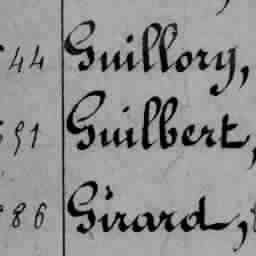 44 Guillory,
91 Guilbert,
86 Girard,